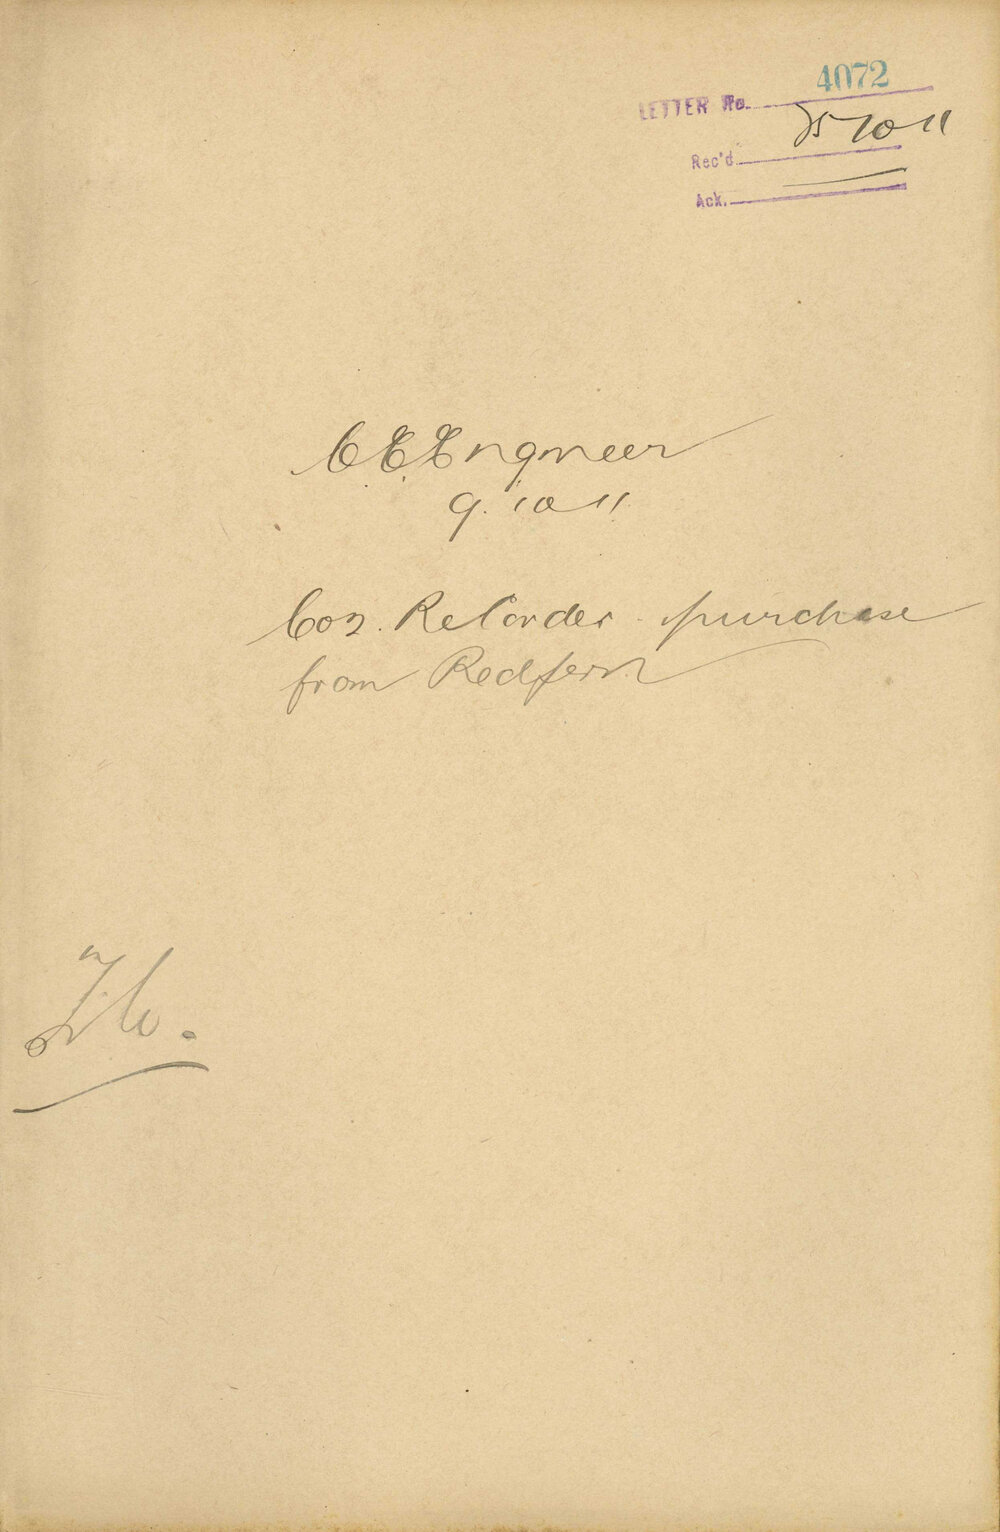 LETTER No. 4072
Rec'd 25 10 11
Ack.
C E Engineer
9. 10 11
Co2. Recorder purchase
from Redfern